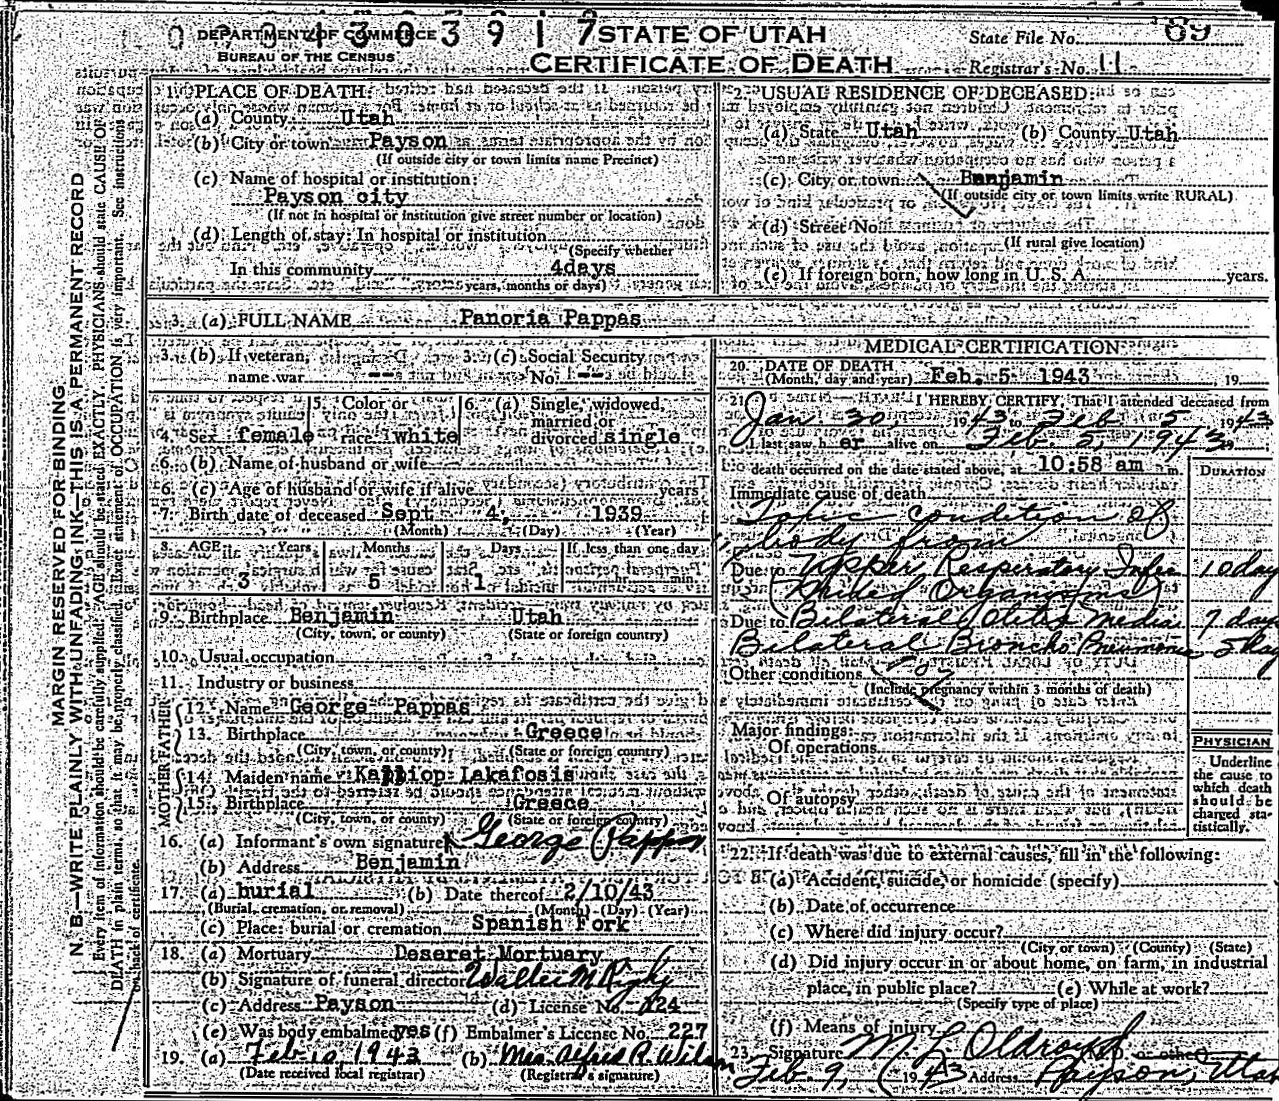 004303917 STATE OF UTAH
DEPARTMENT OF COMMERCE
BUREAU OF THE CENSUS
CERTIFICATE OF DEATH
State File No. 69
Registrar's No. 11
MARGIN RESERVED FOR BINDING
N. B.—WRITE PLAINLY WITH UNFADING INK—THIS IS A PERMANENT RECORD
Every item of information should be carefully supplied. AGE should be stated EXACTLY. PHYSICIANS should state CAUSE OF
DEATH in plain terms, so that it may be properly classified. Exact statement of OCCUPATION is very important. See instructions
on back of certificate.
1. PLACE OF DEATH:
(a) County Utah
(b) City or town Payson
(If outside city or town limits name Precinct)
(c) Name of hospital or institution:
Payson city
(If not in hospital or institution give street number or location)
(d) Length of stay: In hospital or institution
(Specify whether
In this community 4days
years, months or days)
2. USUAL RESIDENCE OF DECEASED:
(a) State Utah (b) County Utah
(c) City or town Benjamin
(If outside city or town limits write RURAL)
(d) Street No.
(If rural give location)
(e) If foreign born, how long in U. S. A. years.
3. (a) FULL NAME Panoria Pappas
3. (b) If veteran, name war -- 3. (c) Social Security No. --
4. Sex female 5. Color or race white 6. (a) Single, widowed, married or divorced single
6. (b) Name of husband or wife
6. (c) Age of husband or wife if alive years
7. Birth date of deceased Sept 4, 1939
(Month) (Day) (Year)
8. AGE Years Months Days If less than one day
3 5 1 hr. min.
9. Birthplace Benjamin Utah
(City, town, or county) (State or foreign country)
10. Usual occupation
11. Industry or business
FATHER
12. Name George Pappas
13. Birthplace Greece
(City, town, or county) (State or foreign country)
MOTHER
14. Maiden name Kalliop Lakafosis
15. Birthplace Greece
(City, town, or county) (State or foreign country)
16. (a) Informant's own signature George Pappas
(b) Address Benjamin
17. (a) burial (b) Date thereof 2/10/43
(Burial, cremation, or removal) (Month) (Day) (Year)
(c) Place: burial or cremation Spanish Fork
18. (a) Mortuary Deseret Mortuary
(b) Signature of funeral director Walter M Rigby
(c) Address Payson (d) License No. 124
(e) Was body embalmed yes (f) Embalmer's License No. 227
19. (a) Feb 10 1943 (b) Mrs. Alfred R. Wilson
(Date received local registrar) (Registrar's signature)
MEDICAL CERTIFICATION
20. DATE OF DEATH
(Month, day and year) Feb. 5 1943 19
21. I HEREBY CERTIFY, That I attended deceased from
Jan 30, 1943 to Feb 5 1943
I last saw her alive on Feb. 5, 1943 19
death occurred on the date stated above, at 10:58 am m.
DURATION
Immediate cause of death
Toxic condition of
body from
Due to Upper Respiratory Infec 10 day
(Mixed Organisms)
Due to Bilateral Otitis Media 7 day
Bilateral Broncho Pneumonia 5 day
Other conditions
107
(Include pregnancy within 3 months of death)
Major findings:
Of operations
Of autopsy
PHYSICIAN
Underline
the cause to
which death
should be
charged sta-
tistically.
22. If death was due to external causes, fill in the following:
(a) Accident, suicide, or homicide (specify)
(b) Date of occurrence
(c) Where did injury occur?
(City or town) (County) (State)
(d) Did injury occur in or about home, on farm, in industrial
place, in public place? (e) While at work?
(Specify type of place)
(f) Means of injury
23. Signature M L Oldroyd D. or other
Feb 9, 1943 Address Payson, Utah